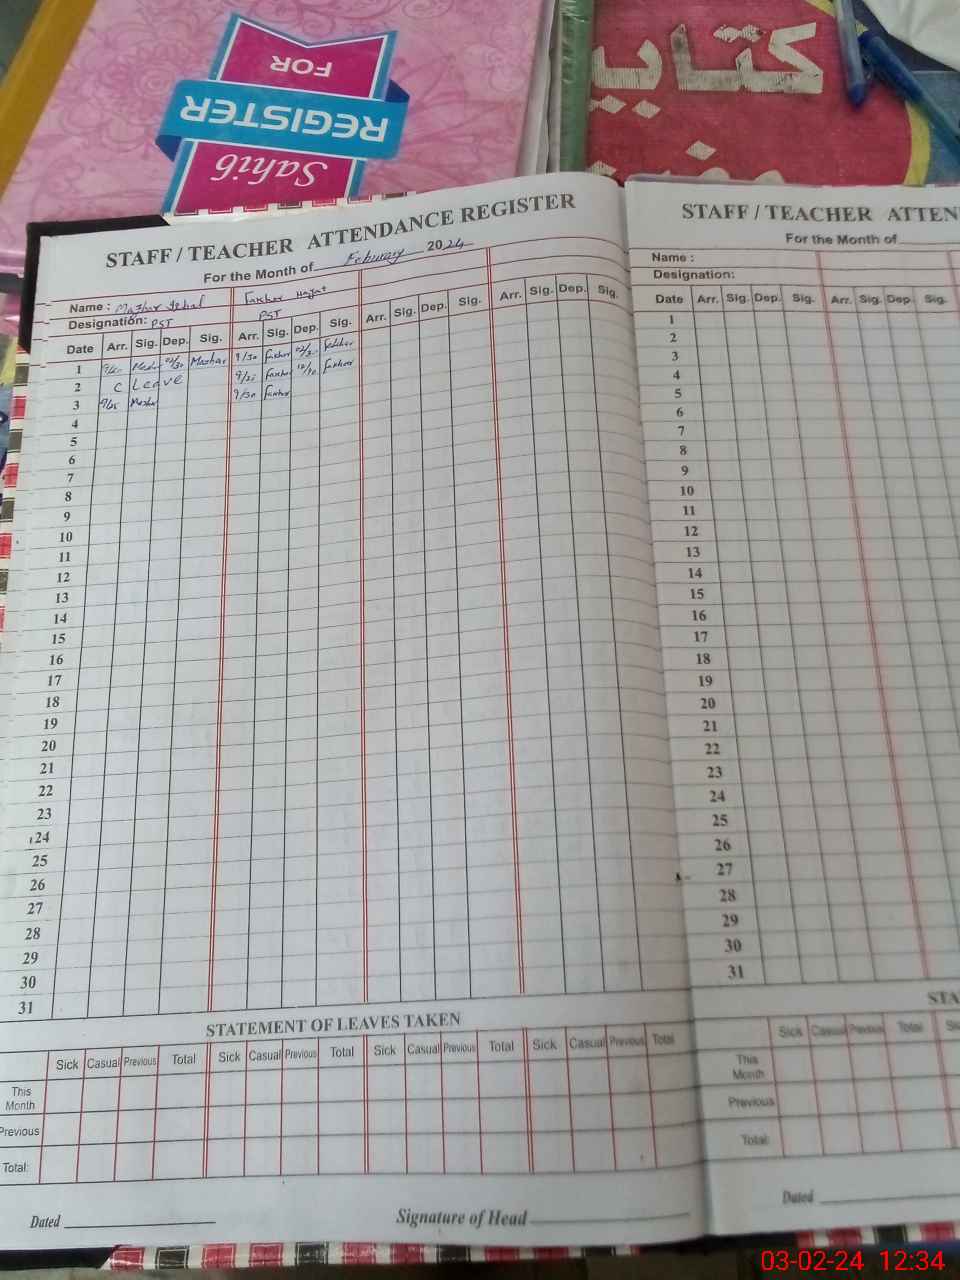 FOR
REGISTER
Sahib
کتاب
STAFF / TEACHER ATTENDANCE REGISTER
For the Month of February 2024
Name : Mazhar Iqbal Fakhar Hayat
Designation: PST PST
Date Arr. Sig. Dep. Sig. Arr. Sig. Dep. Sig. Arr. Sig. Dep. Sig. Arr. Sig. Dep. Sig.
1 Mazhar 9/30 Fakhar
2 C Leave Fakhar
3 9/30 Fakhar
4
5
6
7
8
9
10
11
12
13
14
15
16
17
18
19
20
21
22
23
24
25
26
27
28
29
30
31
STATEMENT OF LEAVES TAKEN
Sick Casual Previous Total Sick Casual Previous Total Sick Casual Previous Total Sick Casual Previous Total
This Month
Previous
Total:
Dated Signature of Head
STAFF / TEACHER ATTEN
For the Month of
Name :
Designation:
Date Arr. Sig. Dep. Sig. Arr. Sig. Dep. Sig.
1
2
3
4
5
6
7
8
9
10
11
12
13
14
15
16
17
18
19
20
21
22
23
24
25
26
27
28
29
30
31
STA
Sick Casual Previous Total
This Month
Previous
Total:
Dated
03-02-24 12:34